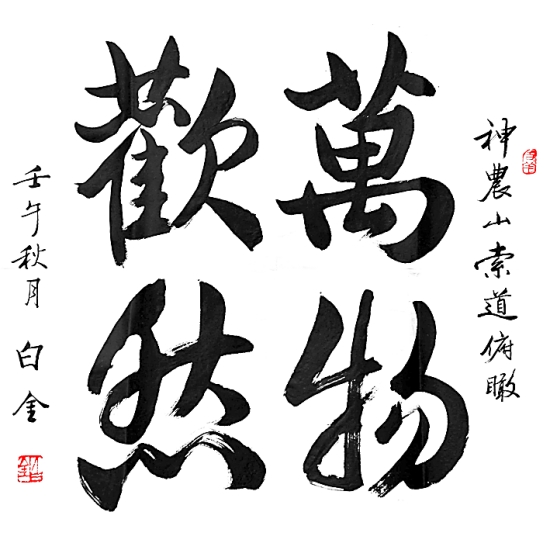 神農山索道俯瞰
萬物
歡然
壬午秋月 白金